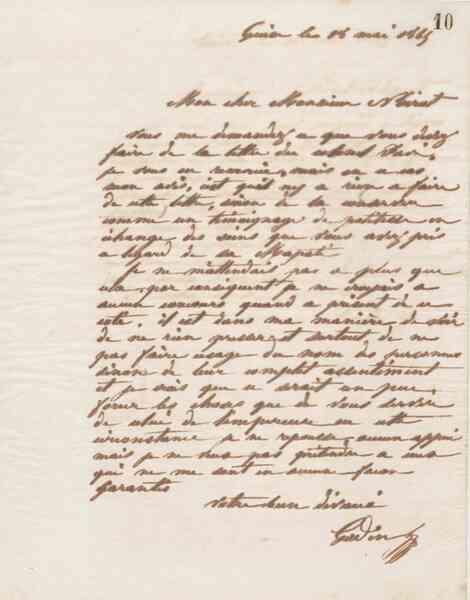 10
Guise le 16 mai 1865
Mon cher Monsieur
vous me demandez ce que vous devez
faire de la lettre du colonel Favé,
je vous en remercie, mais en ce cas
mon avis, c'est qu'il n'y a rien a faire
de cette lettre, sinon de la conserver
comme un témoignage de politesse en
échange des soins que vous avez pris
a l'égard de sa Majesté
Je ne m'attendais pas a plus que
cela, par conséquent je ne croyais a
aucun concours quand a présent de ce
coté. il est dans ma manière de voir
de ne rien presser, et surtout de ne
pas faire usage du nom des personnes
sinon de leur complet assentiment
et je crois que ce serait un peu
forcer les choses que de vous servir
de celui de l'empereur en cette
circonstance je ne repousse aucun appui
mais je ne veux pas prétendre a ceux
qui ne me sont en aucune facon
garantis
votre bien dévoué
Godin